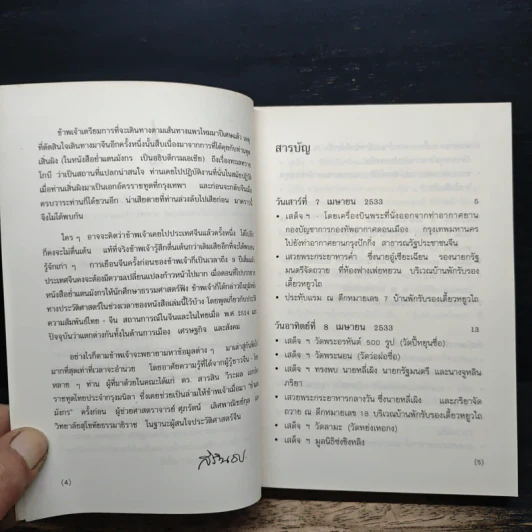 ข้าพเจ้าเตรียมการที่จะเดินทางตามเส้นทางแพรไหมมาปีเศษแล้ว
ที่ตัดสินใจเดินทางมาจีนอีกครั้งหนึ่งนั้นสืบเนื่องมาจากการที่ได้คุยกับท่านทูต
เสินผิง (ในหนังสือย่ำแดนมังกร เป็นอธิบดีกรมเอเชีย) ถึงเรื่องทะเลทราย
โกบี ว่าเป็นสถานที่แปลกน่าสนใจ ท่านเคยไปปฏิบัติงานที่นั่นในสมัย
เมื่อท่านเสินผิงมาเป็นเอกอัครราชทูตที่กรุงเทพฯ และก่อนจะกลับจีนเมื่อ
ครบวาระท่านก็ได้ชวนอีก น่าเสียดายที่ท่านล่วงลับไปเสียก่อน
จึงไม่ได้พบกัน
ใคร ๆ อาจจะคิดว่าข้าพเจ้าเคยไปประเทศจีนแล้วครั้งหนึ่ง
ก็คงจะไม่ตื่นเต้น แต่ที่จริงข้าพเจ้ารู้สึกตื่นเต้นกว่าเดิมเสียอีกที่จะ
รู้จักเก่า ๆ การเยือนจีนครั้งก่อนของข้าพเจ้าก็เป็นเวลาถึง 9 ปี
ประเทศจีนคงจะต้องมีความเปลี่ยนแปลงก้าวหน้าไปมาก
หนังสือย่ำแดนมังกรให้นักศึกษาธรรมศาสตร์ฟัง ข้าพเจ้าก็ได้กล่าว
ทางประวัติศาสตร์ในช่วงเวลาของหนังสือเล่มนี้ไว้บ้าง โดยพูดเกี่ยวกับ
ความสัมพันธ์ไทย - จีน สถานการณ์ในจีนและในไทยเมื่อ พ.ศ. 2514
ปัจจุบันว่าแตกต่างกันทั้งในด้านการเมือง เศรษฐกิจ และสังคม
อย่างไรก็ตามข้าพเจ้าจะพยายามหาข้อมูลต่าง ๆ มาเล่าสู่กัน
มากที่สุดเท่าที่เวลาจะอำนวย โดยอาศัยความรู้ที่ได้จากผู้รู้ชาวจีน -
หลาย ๆ ท่าน ผู้ที่มาด้วยในคณะได้แก่ ดร. สารสิน วีระผล
ราชทูตไทยประจำกรุงมนิลา ซึ่งเคยช่วยเป็นล่ามให้ข้าพเจ้าเมื่อมา
มังกร" ครั้งก่อน ผู้ช่วยศาสตราจารย์ ศุภรัตน์ เลิศพาณิชย์กุล
วิทยาลัยสุโขทัยธรรมาธิราช ในฐานะผู้สนใจประวัติศาสตร์จีน
สิรินธร
(4)
สารบัญ
วันเสาร์ที่ 7 เมษายน 2533 5
• เสด็จ ฯ - โดยเครื่องบินพระที่นั่งออกจากท่าอากาศยาน
กองบัญชาการกองทัพอากาศดอนเมือง กรุงเทพมหานคร
ไปยังท่าอากาศยานกรุงปักกิ่ง สาธารณรัฐประชาชนจีน
• เสวยพระกระยาหารค่ำ ซึ่งนายอู๋เซี๋ยะเฉียน รองนายกรัฐ
มนตรีจัดถวาย ที่ห้องฟางเฟยหยวน บริเวณบ้านพักรับรอง
เตี้ยวหยูวไถ
• ประทับแรม ณ ตึกหมายเลข 7 บ้านพักรับรองเตี้ยวหยูวไถ
วันอาทิตย์ที่ 8 เมษายน 2533 13
• เสด็จ ฯ วัดพระอรหันต์ 500 รูป (วัดปี้หยูนซื่อ)
• เสด็จ ฯ วัดพระนอน (วัดว่อฝอซื่อ)
• เสด็จ ฯ ทรงพบ นายหลี่เผิง นายกรัฐมนตรี และนางจูหลิน
ภริยา
• เสวยพระกระยาหารกลางวัน ซึ่งนายหลี่เผิง และภริยาจัด
ถวาย ณ ตึกหมายเลข 18 บริเวณบ้านพักรับรองเตี้ยวหยูวไถ
• เสด็จ ฯ วัดลามะ (วัดหย่งเหอกง)
• เสด็จ ฯ มูลนิธิซ่งชิงหลิง
(5)